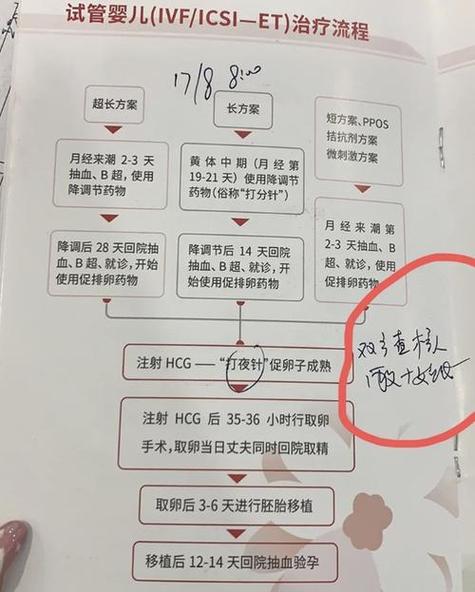 试管婴儿(IVF/ICSI—ET)治疗流程
17/8 8:00
超长方案
长方案
短方案、PPOS
拮抗剂方案
微刺激方案
月经来潮 2-3 天
抽血、B 超，使用
降调节药物
黄体中期（月经第
19-21 天）使用降调节
药物(俗称“打分针”)
月经来潮第
2-3 天抽血、B
超、就诊，使用
促排卵药物
降调后 28 天回院抽
血、B 超、就诊，开始
使用促排卵药物
降调节后 14 天回院
抽血、B 超、就诊，开
始使用促排卵药物
注射 HCG —— “打夜针”促卵子成熟
注射 HCG 后 35-36 小时行取卵
手术，取卵当日丈夫同时回院取精
取卵后 3-6 天进行胚胎移植
移植后 12-14 天回院抽血验孕